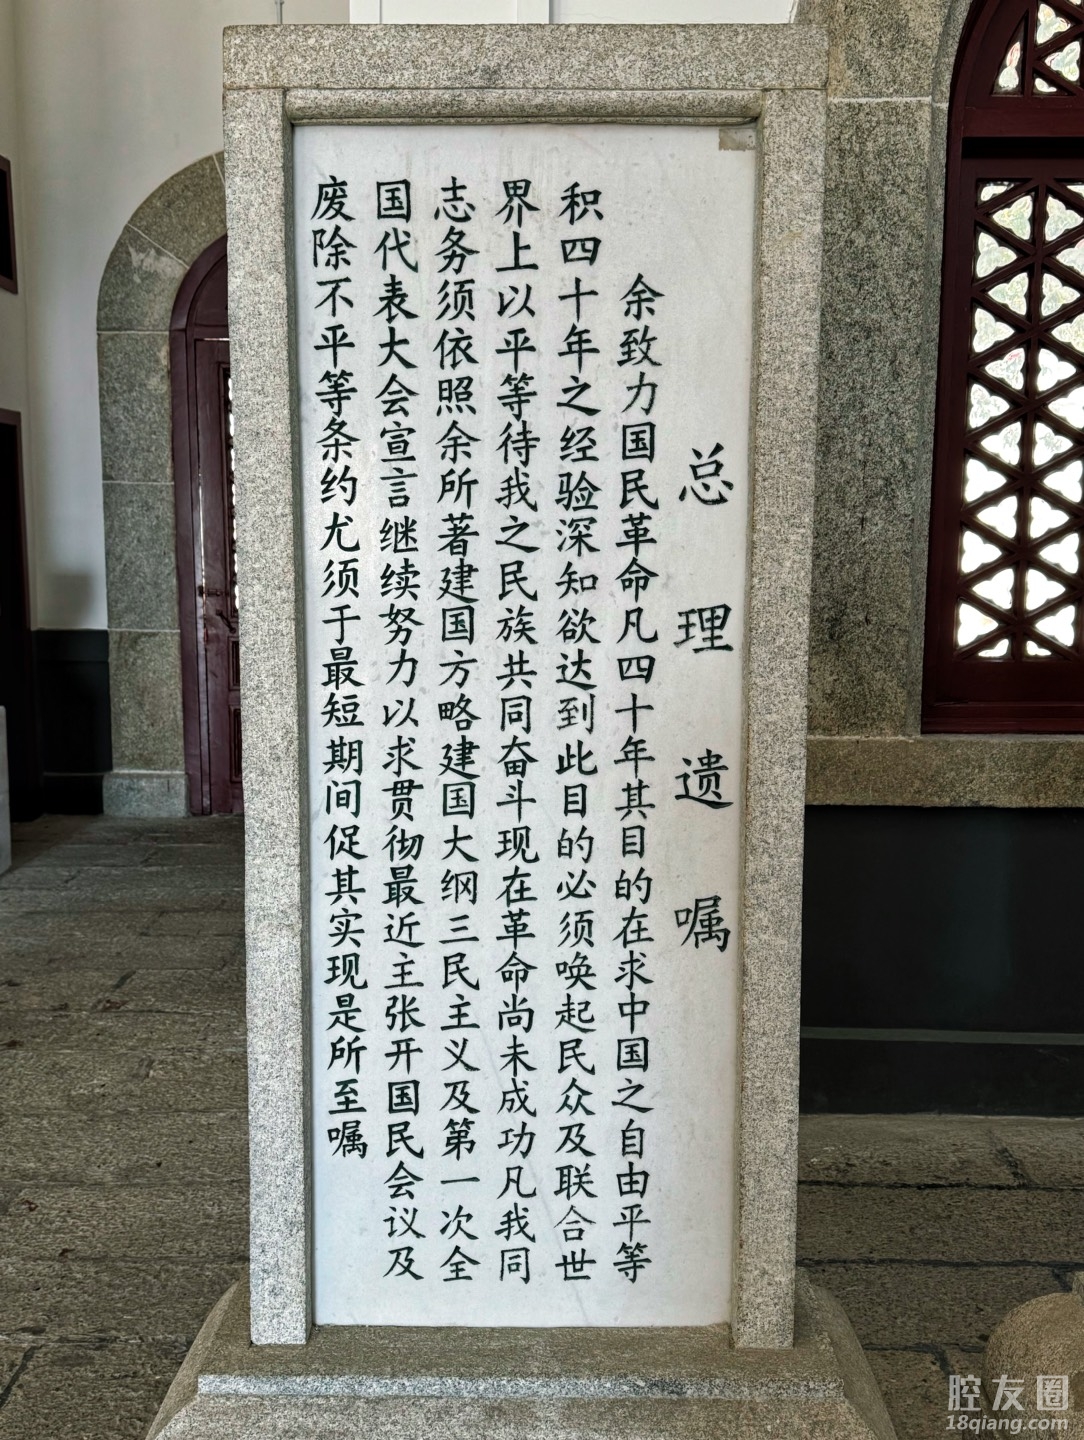 总理遗嘱
余致力国民革命凡四十年其目的在求中国之自由平等
积四十年之经验深知欲达到此目的必须唤起民众及联合世
界上以平等待我之民族共同奋斗现在革命尚未成功凡我同
志务须依照余所著建国方略建国大纲三民主义及第一次全
国代表大会宣言继续努力以求贯彻最近主张开国民会议及
废除不平等条约尤须于最短期间促其实现是所至嘱
腔友圈
18qiang.com